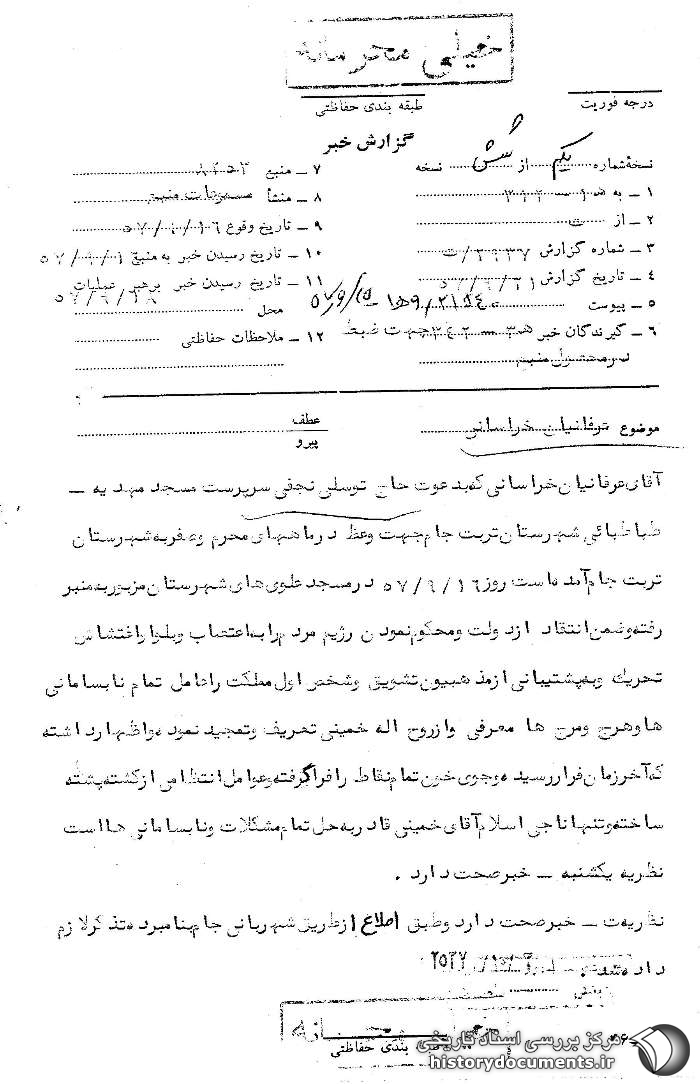 خیلی محرمانه
درجه فوریت
طبقه بندی حفاظتی
گزارش خبر
نسخهٔ شماره یکم از شش نسخه
۱ – به ۳۱۲
۲ – از ت
۳ – شماره گزارش
۴ – تاریخ گزارش
۵ – پیوست
۶ – گیرندگان خبر جهت ضبط
در محصول منبع
۷ – منبع
۸ – منشأ مسموعات منبع
۹ – تاریخ وقوع ۵۷/۹/۱۶
۱۰ – تاریخ رسیدن خبر به منبع
۱۱ – تاریخ رسیدن خبر برهبر عملیات
محل
۱۲ – ملاحظات حفاظتی
موضوع عرفانیان خراسانی
عطف
پیرو
آقای عرفانیان خراسانی که بدعوت حاج توسلی نجفی سرپرست مسجد مهدیه –
طباطبائی شهرستان تربت جام جهت وعظ در ماههای محرم و صفر به شهرستان
تربت جام آمده است روز ۵۷/۹/۱۶ در مسجد علوی های شهرستان مزبور به منبر
رفته و ضمن انتقاد از دولت و محکوم نمودن رژیم مردم را به اعتصاب و بلوا و اغتشاش
تحریک و به پشتیبانی از مذهبیون تشویق و شخص اول مملکت را عامل تمام نابسامانی
ها و هرج و مرج ها معرفی و از روح اله خمینی تعریف و تمجید نموده و اظهار داشته
که آخر زمان فرا رسیده و جوی خون تمام نقاط را فرا گرفته و عوامل انتظامی از کشته پشته
ساخته و تنها ناجی اسلام آقای خمینی قادر به حل تمام مشکلات و نابسامانی ها است
نظریه یکشنبه – خبر صحت دارد .
نظریه ت – خبر صحت دارد و طبق اطلاع از طریق شهربانی جام به نامبرده تذکر لازم
داده شد .
بخش
طبقه بندی حفاظتی
مرکز بررسی اسناد تاریخی
historydocuments.ir